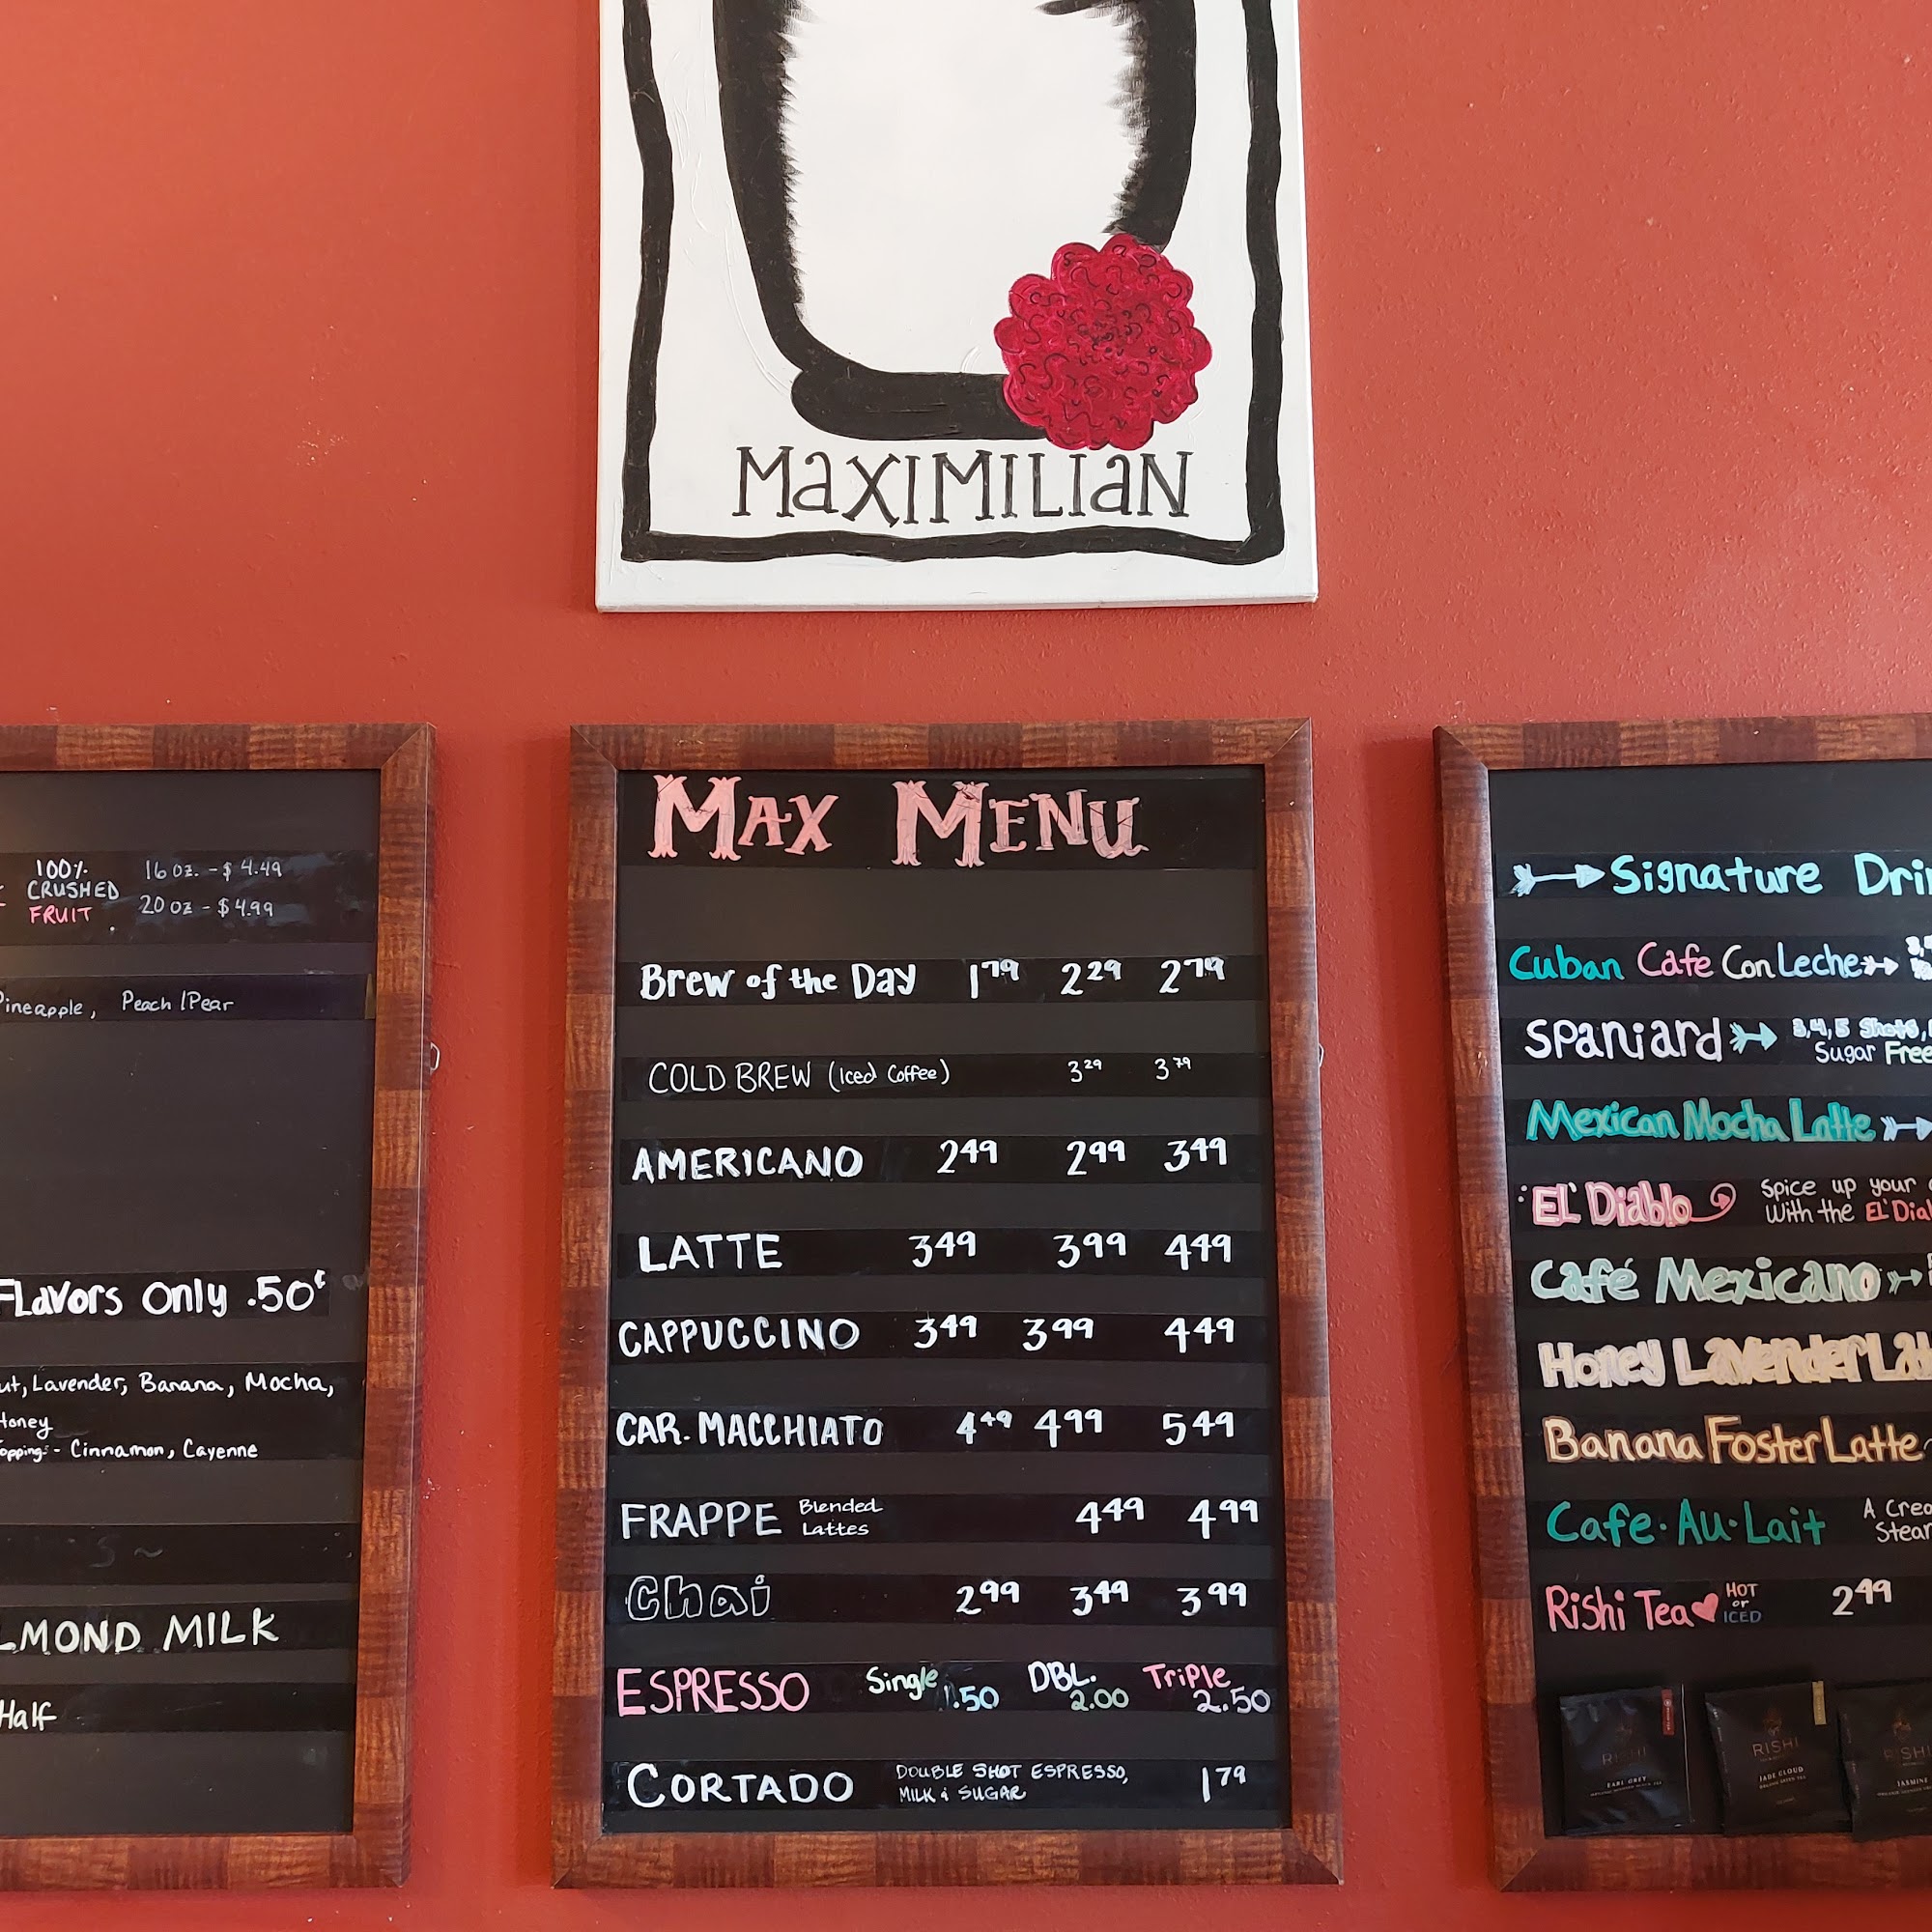 MaXIMILIaN
100%
CRUSHED
FRUIT
16 oz. - $4.49
20 oz - $4.99
Pineapple, Peach / Pear
Flavors Only .50¢
Lavender, Banana, Mocha,
Honey
Cinnamon, Cayenne
MILK
Half
MAX MENU
Brew of the Day 1.79 2.29 2.79
COLD BREW (Iced Coffee) 3.29 3.79
AMERICANO 2.49 2.99 3.49
LATTE 3.49 3.99 4.49
CAPPUCCINO 3.49 3.99 4.49
CAR. MACCHIATO 4.49 4.99 5.49
FRAPPE Blended Lattes 4.49 4.99
Chai 2.99 3.49 3.99
ESPRESSO Single 1.50 DBL. 2.00 Triple 2.50
CORTADO DOUBLE SHOT ESPRESSO,
MILK & SUGAR 1.79
Signature
Cuban Cafe Con Leche
Spaniard 3, 4, 5 Shots,
Sugar Free
Mexican Mocha Latte
EL' Diablo Spice up your
With the EL'
Café Mexicano
Honey Lavender
Banana Foster Latte
Cafe·Au·Lait A
Rishi Tea HOT or ICED 2.49
RISHI
EARL GREY
RISHI
JADE CLOUD
RISHI
JASMINE